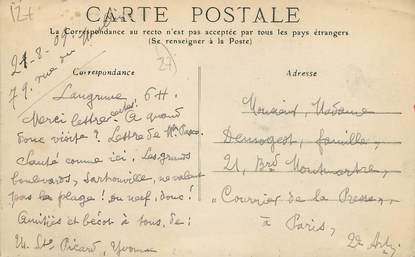 127
CARTE POSTALE
La Correspondance au recto n'est pas acceptée par tous les pays étrangers
(Se renseigner à la Poste)
21-8-09.
79, rue du
27
Correspondance
Adresse
Langrune 6H.
Merci lettre cartes. A quand
donc visite? Lettre de Mme
Santé comme ici. Les grands
boulevards, Sartrouville, ne valent
pas la plage! ou neuf, donc!
Amitiés et bécot à tous, de:
Picard, Yvonne
Monsieur, Madame
Demogeot, famille,
21, Brd Montmartre,
"Courrier de la Presse",
à Paris,
2e Ard.